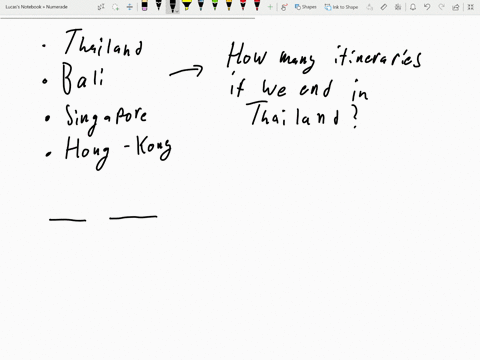 Lucas's Notebook » Numerade
Shapes
Ink to Shape
· Thailand
· Bali
· Singapore
· Hong-Kong
How many itineraries
if we end in
Thailand?